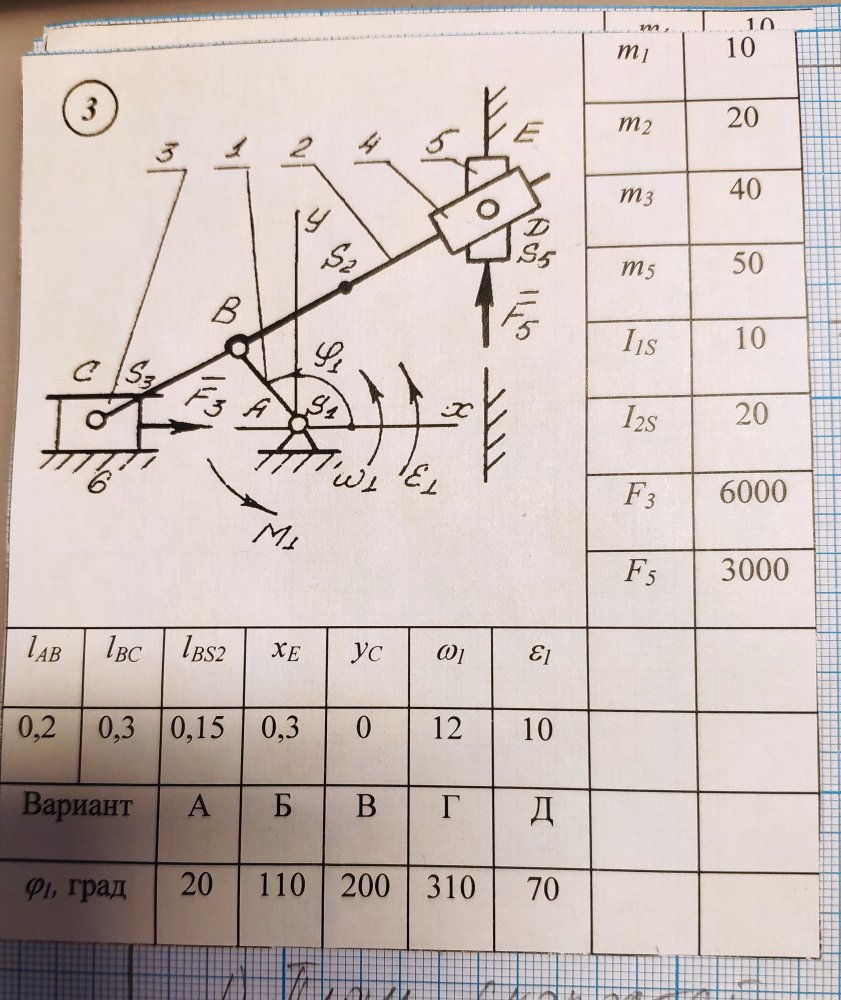 m₁ 10
3
3 1 2 4 5 E
y
S₂
D
S₅
B
F̅₅
C S₃ φ₁
F̅₃ A S₁ x
6 ω₁ ε₁
M₁
m₁ 10
m₂ 20
m₃ 40
m₅ 50
I₁S 10
I₂S 20
F₃ 6000
F₅ 3000
lAB lBC lBS2 xE yC ω₁ ε₁
0,2 0,3 0,15 0,3 0 12 10
Вариант А Б В Г Д
φ₁, град 20 110 200 310 70